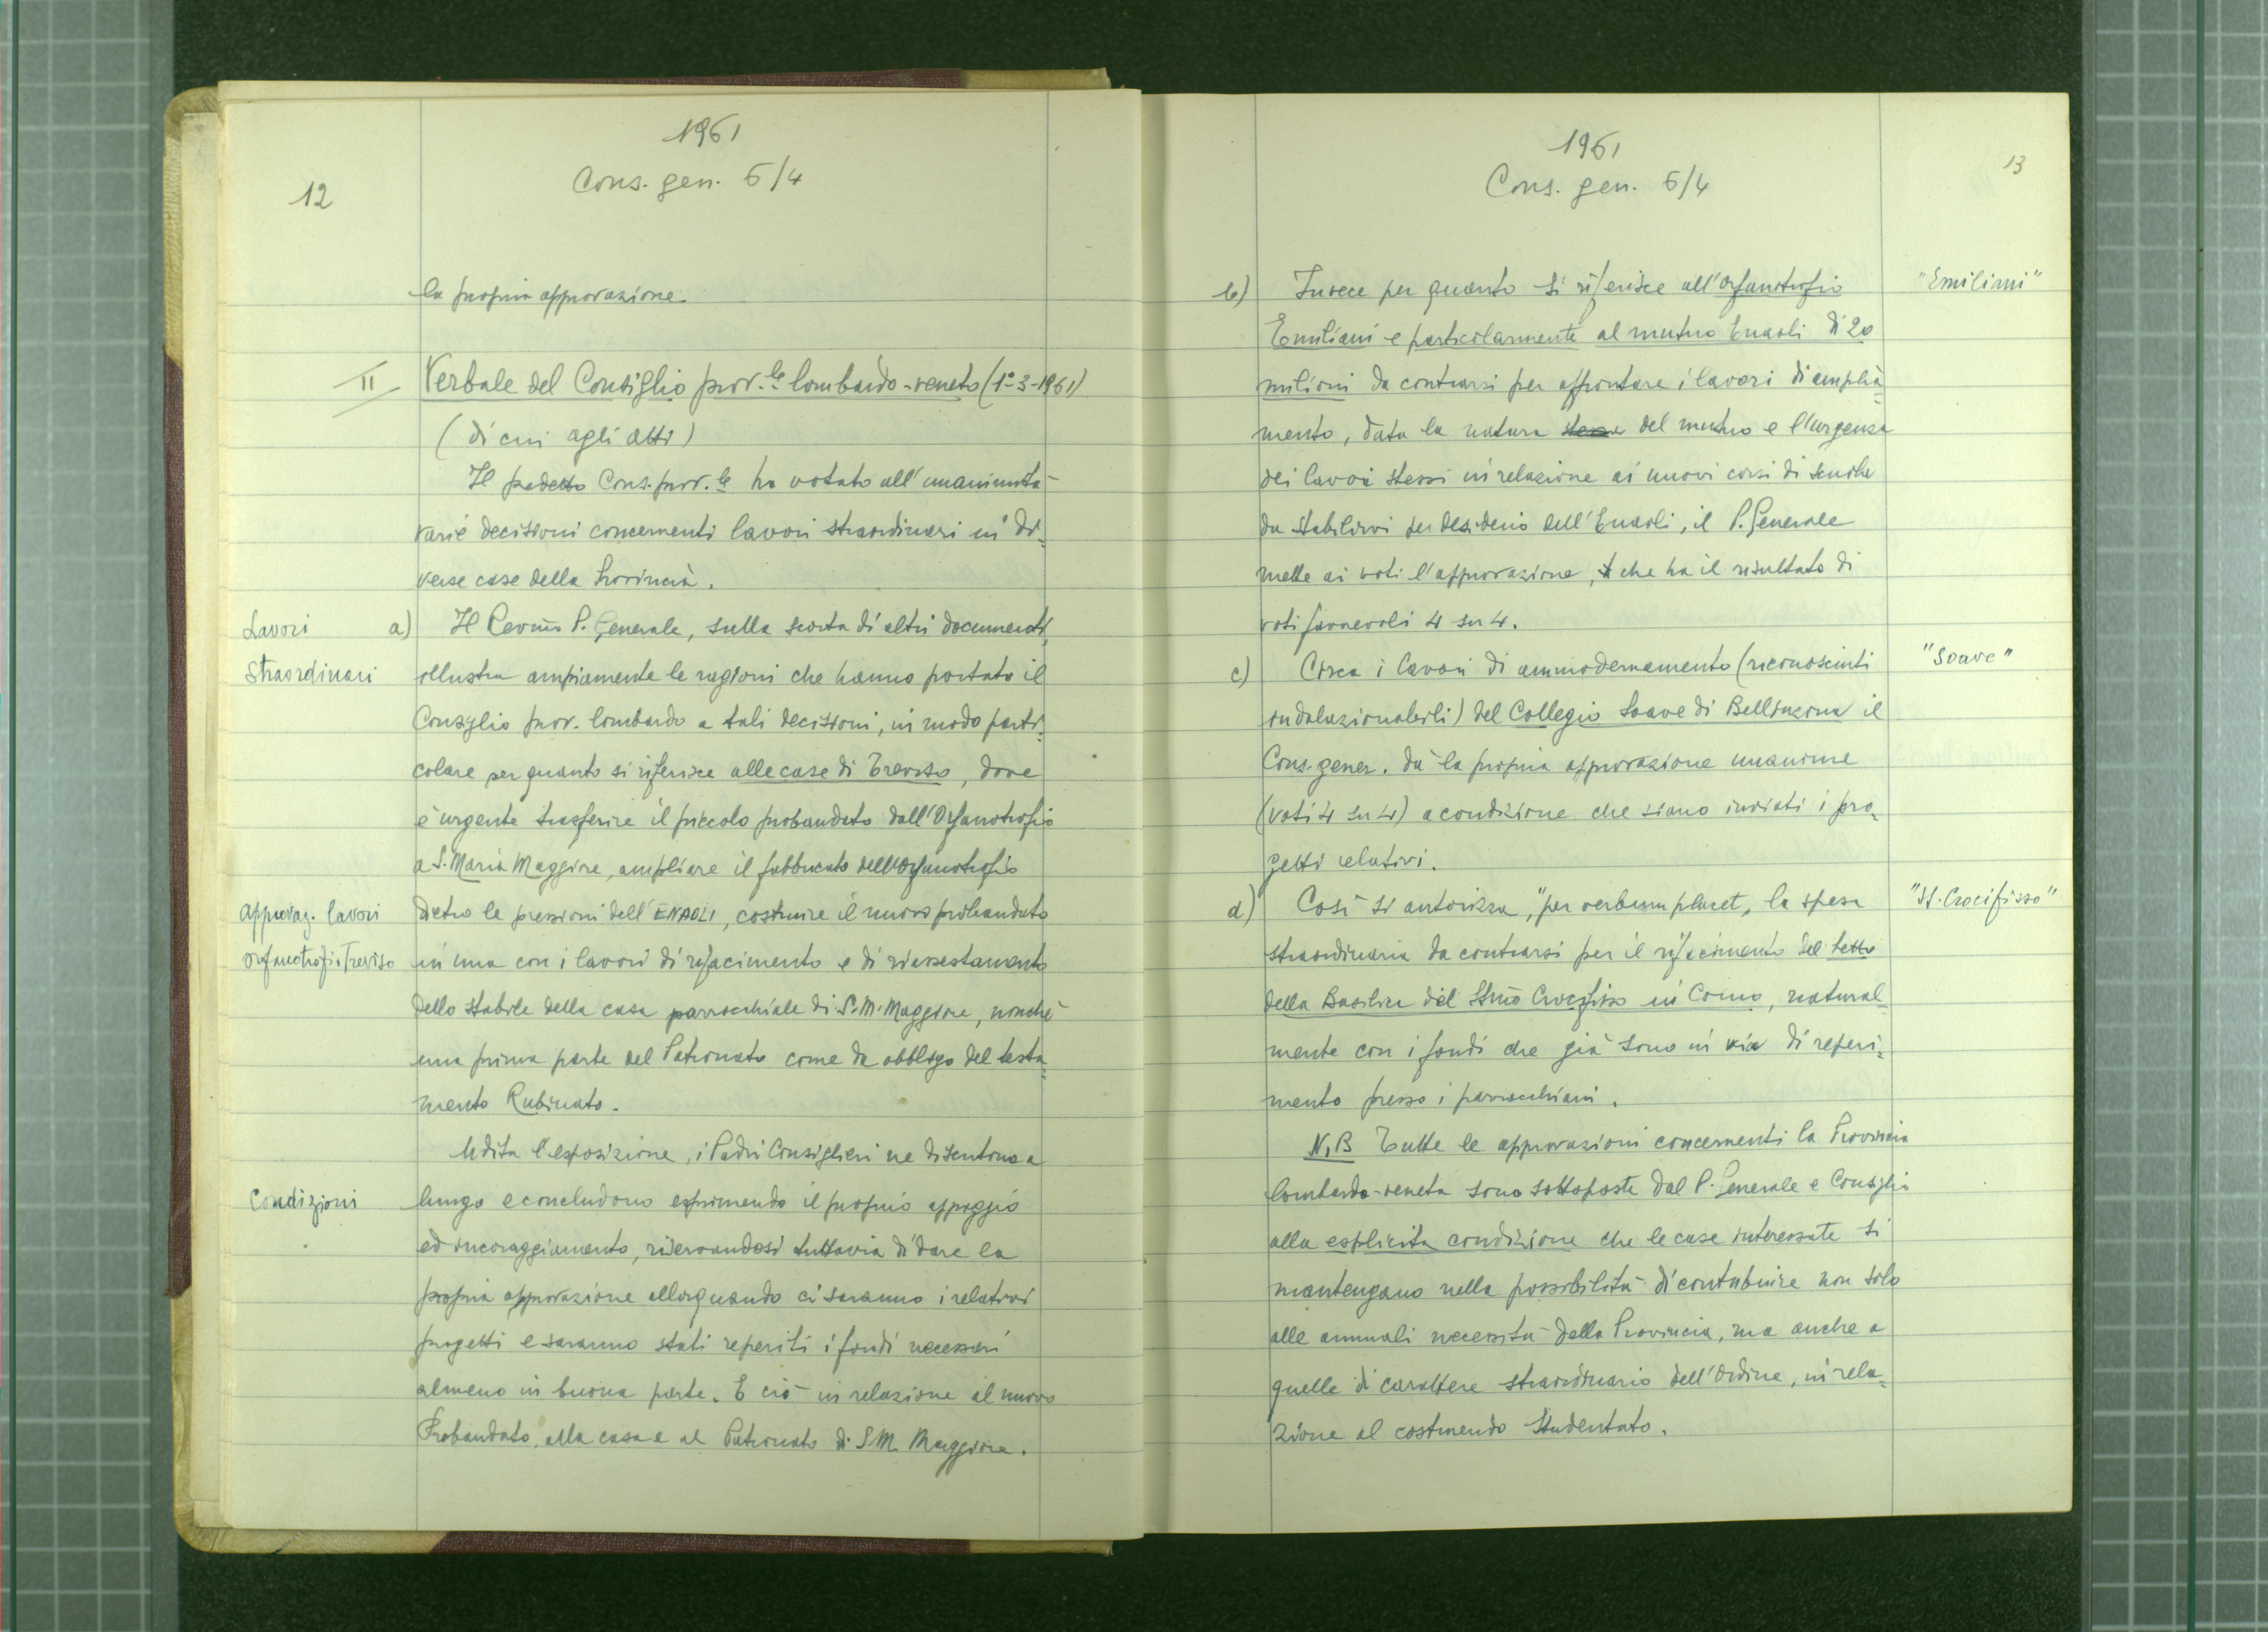 12
1961
Cons. gen. 5/4
la propria approvazione.
II Verbale del Consiglio prov.le lombardo-veneto (1°-3-1961)
(di cui agli atti)
Il predetto Cons. prov.le ha votato all'unanimità
varie decisioni concernenti lavori straordinari in di-
verse case della Provincia.
Lavori
straordinari
a) Il Rev.mo P. Generale, sulla scorta di altri documenti,
illustra ampiamente le ragioni che hanno portato il
Consiglio prov. lombardo a tali decisioni, in modo parti-
colare per quanto si riferisce alle case di Treviso, dove
è urgente trasferire il piccolo probandato dall'Orfanotrofio
a S. Maria Maggiore, ampliare il fabbricato dell'Orfanotrofio
Approvaz. lavori
orfanotrofio Treviso
dietro le pressioni dell'ENAOLI, costruire il nuovo probandato
in una con i lavori di rifacimento e di riassestamento
dello stabile della casa parrocchiale di S. M. Maggiore, nonché
una prima parte del Patronato come da obbligo del testa-
mento Rubinato.
Udita l'esposizione, i Padri Consiglieri ne discutono a
Condizioni
lungo e concludono esprimendo il proprio appoggio
ed incoraggiamento, riservandosi tuttavia di dare la
propria approvazione allorquando ci saranno i relativi
progetti e saranno stati reperiti i fondi necessari
almeno in buona parte. E ciò in relazione al nuovo
Probandato, alla casa e al Patronato di S. M. Maggiore.
13
1961
Cons. gen. 5/4
b) Invece per quanto si riferisce all'Orfanotrofio
"Emiliani"
Emiliani e particolarmente al mutuo Enaoli di 20
milioni da contrarsi per affrontare i lavori di amplia-
mento, data la natura stessa del mutuo e l'urgenza
dei lavori stessi in relazione ai nuovi corsi di scuola
da stabilirvi per desiderio dell'Enaoli, il P. Generale
mette ai voti l'approvazione, che ha il risultato di
voti favorevoli 4 su 4.
c) Circa i lavori di ammodernamento (riconosciuti
"Soave"
indilazionabili) del Collegio Soave di Bellinzona il
Cons. gener. dà la propria approvazione unanime
(voti 4 su 4) a condizione che siano inviati i pro-
getti relativi.
d) Così si autorizza, "per verbum placet, la spesa
"SS. Crocifisso"
straordinaria da contrarsi per il rifacimento del tetto
della Basilica del SS.mo Crocifisso in Como, natural-
mente con i fondi che già sono in via di reperi-
mento presso i parrocchiani.
N.B Tutte le approvazioni concernenti la Provincia
lombardo-veneta sono sottoposte dal P. Generale e Consiglio
alla esplicita condizione che le case interessate si
mantengano nella possibilità di contribuire non solo
alle annuali necessità della Provincia, ma anche a
quelle di carattere straordinario dell'Ordine, in rela-
zione al costruendo Studentato.